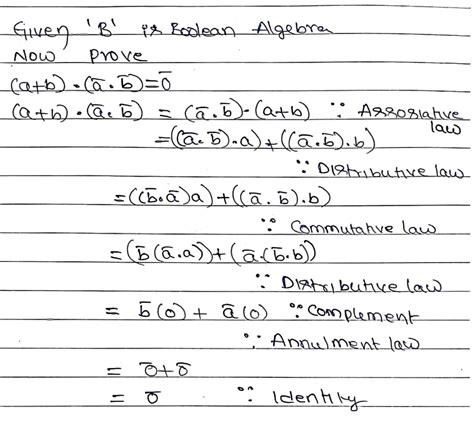 Given 'B' is Boolean Algebra
Now Prove
(a+b)·(a̅·b̅)=0̅
(a+b)·(a̅·b̅) = (a̅·b̅)·(a+b) ∵ Assosiative law
=((a̅·b̅)·a)+((a̅·b̅)·b)
∵ Distributive law
=((b̅·a̅)a)+((a̅·b̅)·b)
∵ Commutative law
=(b̅(a̅·a))+(a̅·(b̅·b))
∵ Distributive law
= b̅(0)+ a̅(0) ∵ Complement
∵ Annulment law
= 0̅+0̅
= 0̅ ∵ Identity